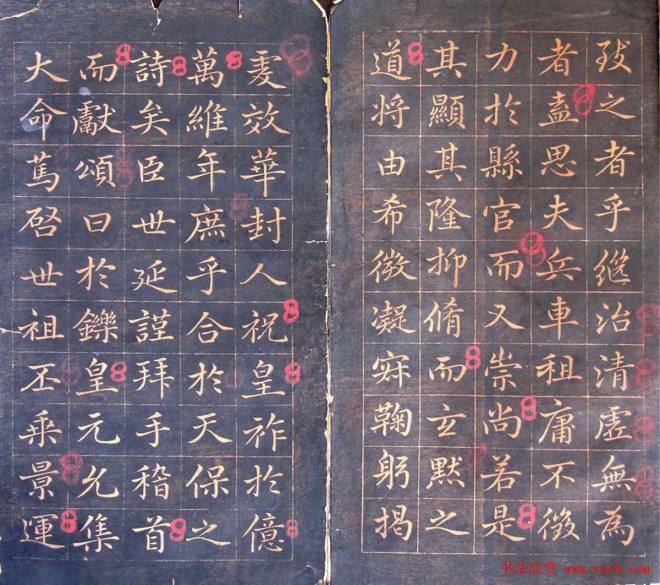 致之者乎繼治清虛無為
者盍思夫兵車祖庸不徵
力於縣官而又崇尚若是
其顯其隆抑脩而玄默之
道將由希微凝寂鞠躬揭
虔效華封人祝皇祚於億
萬維年庶乎合於天保之
詩矣臣世延謹拜手稽首
而獻頌曰於鑠皇元允集
大命篤启世祖丕乘景運
书法欣赏 www.yac8.com